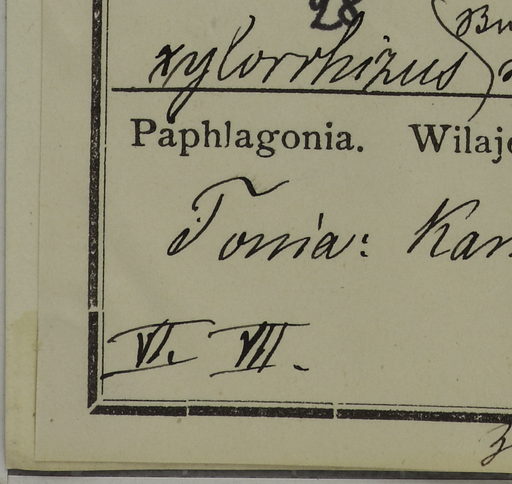 28
xylorrhizus
Paphlagonia. Wilaj
Tossia: Kar
VI. VII.